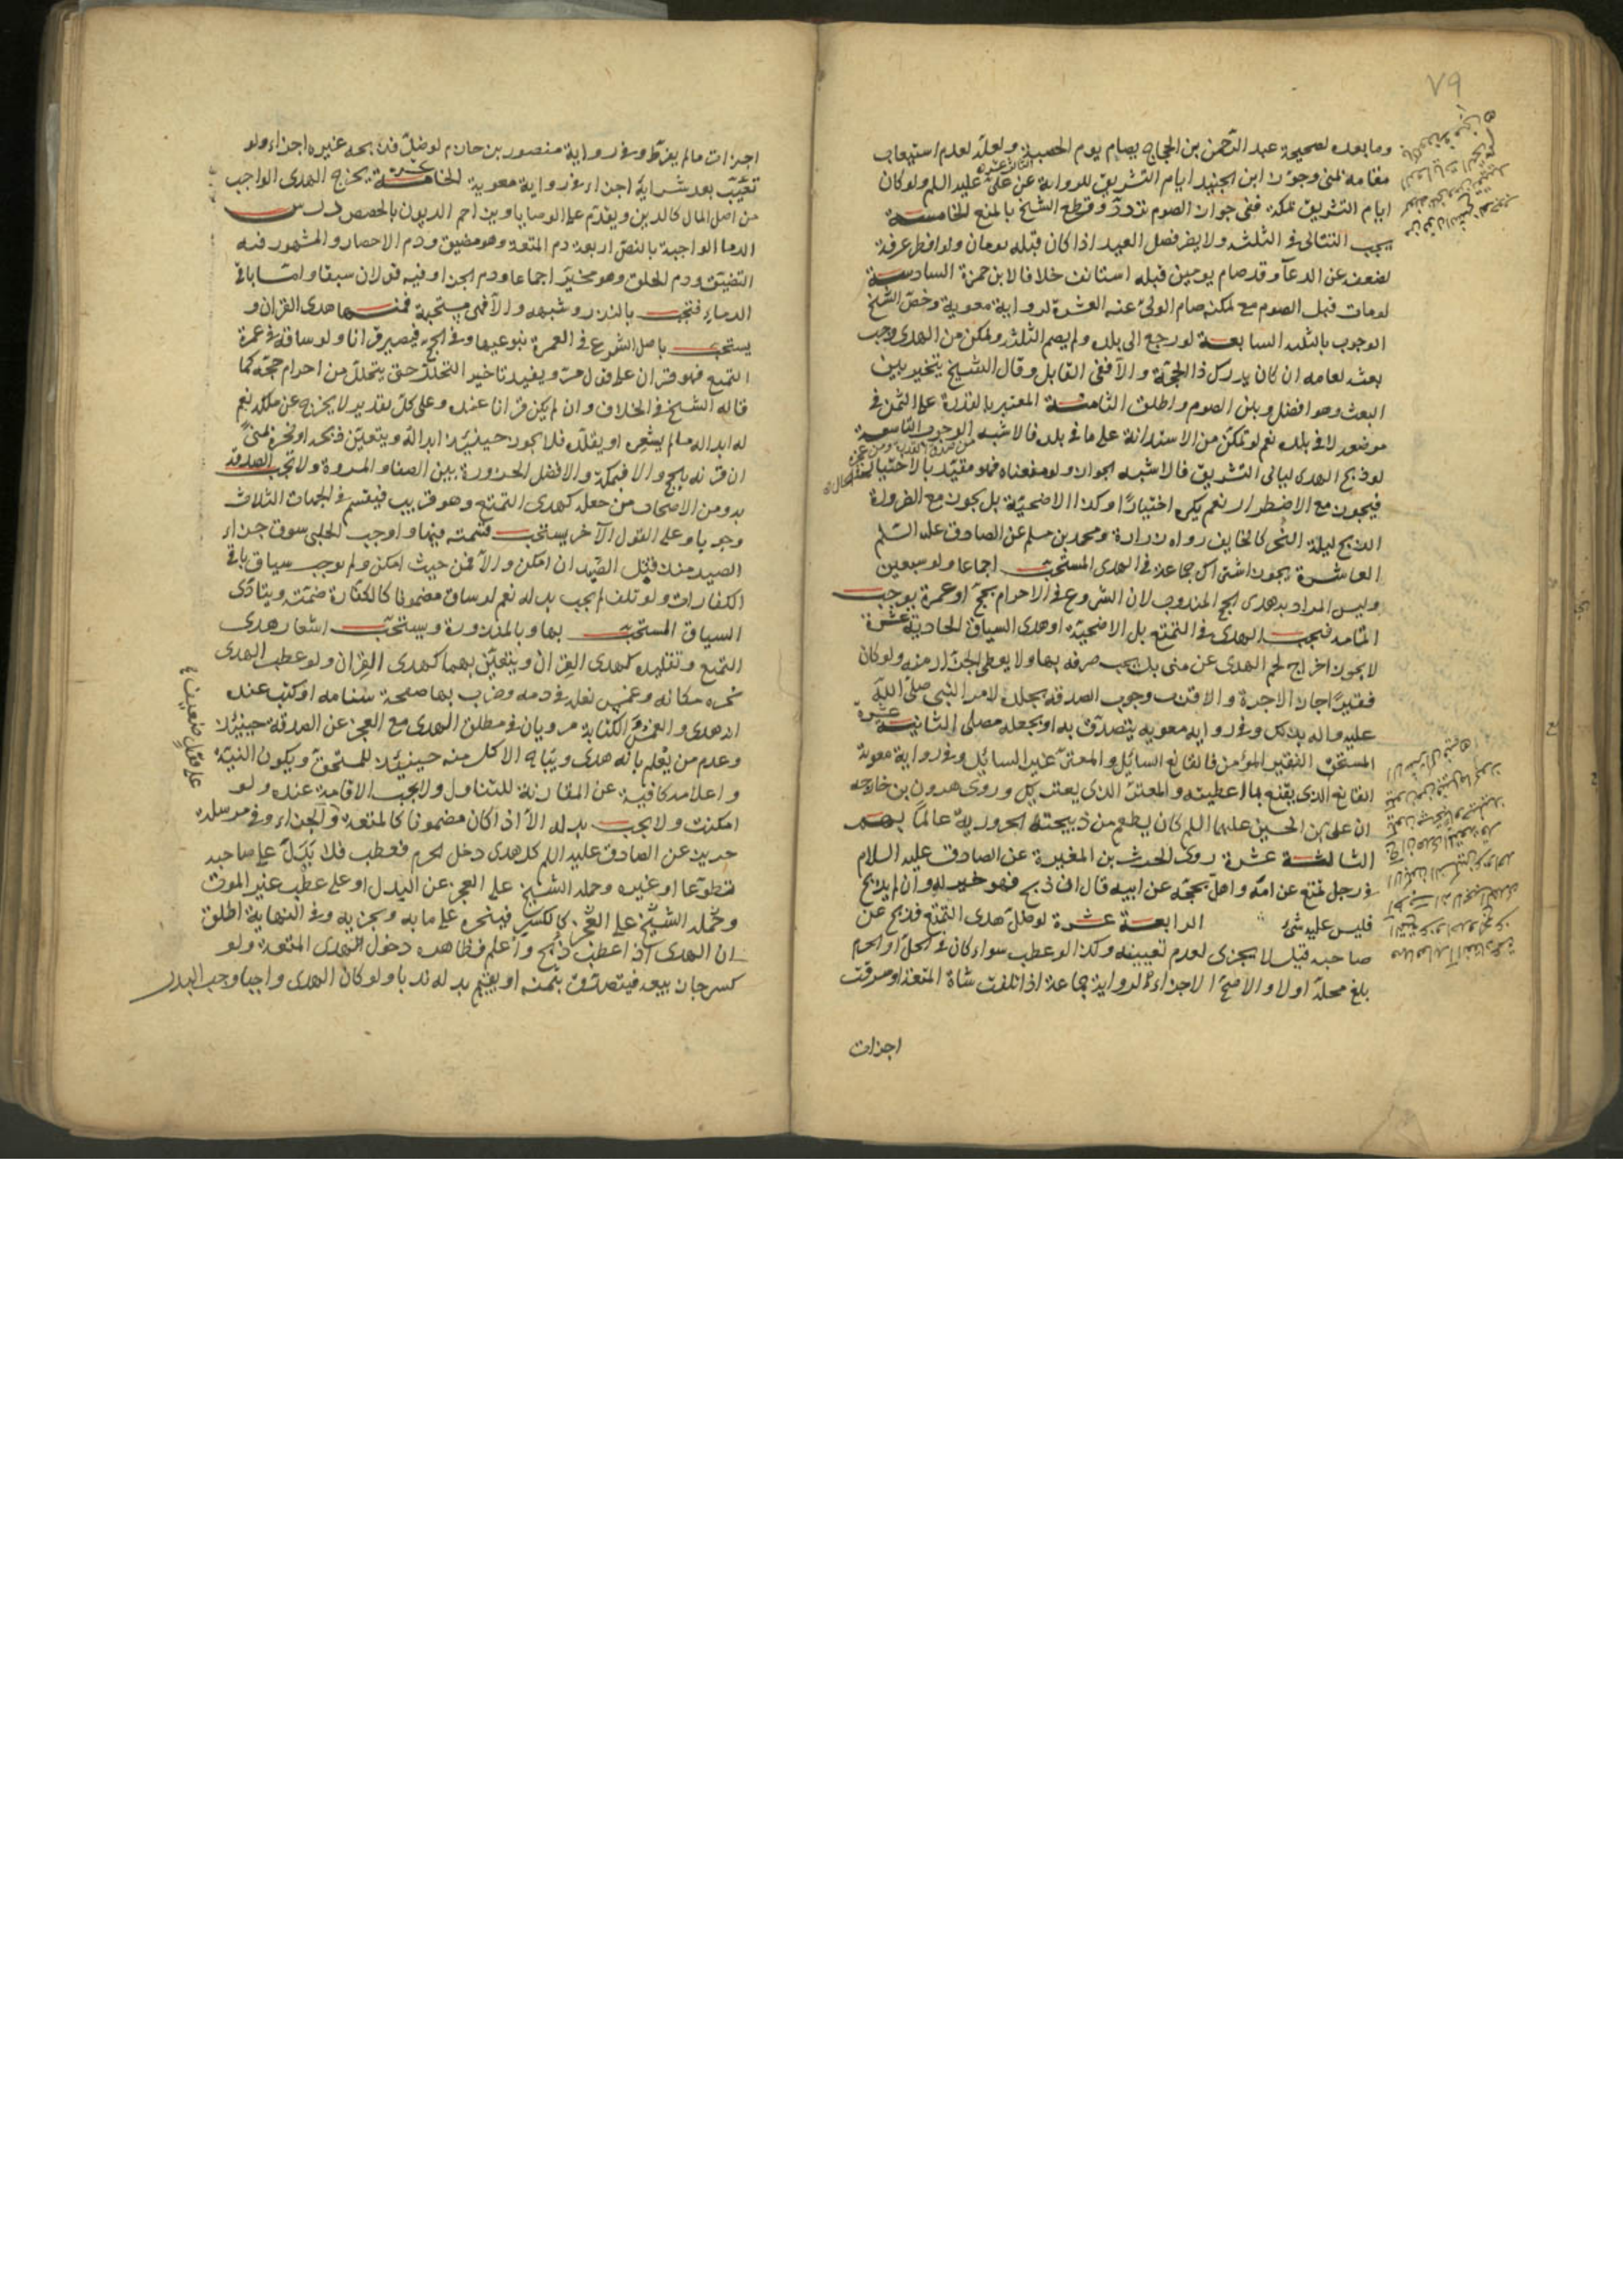 ٧٩
وما بعده لصحيحة عبد الرحمن بن الحجاج يصام يوم الحصبة ولعله لعدم استيعاب
مقامه بمنى وجوز ابن الجنيد ايام التشريق للرواية عن علي عليه السلم ولو كان
ايام التشريق بمكة ففي جواز الصوم تردد وقطع الشيخ بالمنع الخامسة
يجب التتالي في الثلثة ولا يضر فصل العيد اذا كان قبله يومان ولو افطر عرفة
لضعفه عن الدعاء وقد صام يومين قبله استانف خلافا لابن حمزة السادسة
لو مات قبل الصوم مع تمكنه صام الولي عنه العشرة لرواية معوية وخص الشيخ
الوجوب بالثلثة السابعة لو رجع الى بلده ولم يصم الثلثة وتمكن من الهدي وجب
بعثه لعامه ان كان يدرك ذا الحجة والا ففي القابل وقال الشيخ يتخير بين
البعث وهو افضل وبين الصوم واطلق الثامنة المعتبر بالقدرة على الثمن في
موضعه لا في بلده نعم لو تمكن من الاستدانة على ما في بلده فالاشبه الوجوب التاسعة
لو ذبح الهدي ليالي التشريق فالاشبه الجواز ولو منعناه فهو مقيد بالاختيار
فيجوز مع الاضطرار نعم يكره اختيارا وكذا الاضحية بل يجوز مع الضرورة
الذبح ليلة النحر كالخايف رواه زرارة ومحمد بن مسلم عن الصادق عليه السلم
العاشرة يجوز اشتراك جماعة في الهدي المستحب اجماعا ولو سبعين
وليس المراد به هدي الحج المندوب لان الشروع في الاحرام بحج او عمرة يوجب
اتمامه فيجب الهدي في التمتع بل الاضحية او هدي السياق الحادية عشرة
لا يجوز اخراج لحم الهدي عن منى بل يجب صرفه بها ولا يعطى الجزار منه ولو كان
فقيرا جاز لا اجرة والاقرب وجوب الصدقة بجلده لامر النبي صلى الله
عليه واله بذلك وفي رواية معوية يتصدق به او يجعله مصلى الثانية عشرة
المستحق الفقير المؤمن فالقانع السائل والمعتر غير السائل وفي رواية معوية
القانع الذي يقنع بما اعطيته والمعتر الذي يعتريك وروى هرون بن خارجه
ان علي بن الحسين عليهما السلم كان يطعم من ذبيحته الحرورية عالما بهم
الثالثة عشرة روى الحرث بن المغيرة عن الصادق عليه السلام
في رجل تمتع عن امه واهل بحجه عن ابيه قال ان ذبح فهو خير له وان لم يذبح
فليس عليه شئ الرابعة عشرة لو ضل هدي التمتع فذبح عن
صاحبه قيل لا يجزي لعدم تعيينه وكذا لو عطب سواء كان في الحل او الحرم
بلغ محله او لا والاصح الاجزاء لرواية سماعة اذا تلفت شاة المتعة او سرقت
اجزات
اجزات ما لم يفرط وفي رواية منصور بن حازم لو ضل فذبحه غيره اجزاء ولو
تعيب بعد شرايه اجزاء في رواية معوية الخامسة عشرة يخرج الهدي الواجب
من اصل المال كالدين ويقدم على الوصايا ويزاحم الديون بالحصص درس
الدماء الواجبة بالنص اربعة دم المتعة وهو مضيق ودم الاحصار والمشهور فيه
التضيق ودم الحلق وهو مخير اجماعا ودم الجزاء وفيه قولان سبقا واما باقي
الدماء فتجب بالنذر وشبهه والا فهي مستحبة فمنها هدي القران و
يستحب باصل الشرع في العمرة بنوعيها وفي الحج فيصير قرانا ولو ساقه في عمرة
التمتع فهو قران على قول مر ويفيد تاخير التحلل حتى يتحلل من احرام حجه كما
قاله الشيخ في الخلاف وان لم يكن قرانا عنده وعلى كل تقدير لا يخرج عن ملكه نعم
له ابداله ما لم يشعره او يقلده فلا يجوز حينئذ ابداله ويتعين ذبحه او نحره بمنى
ان قرنه بالحج والا فبمكة والافضل الحزورة بين الصفا والمروة ولا تجب الصدقة
به ومن الاصحاب من جعله كهدي التمتع وهو قريب فيقسم في الجهات الثلاث
وجوبا وعلى القول الاخر يستحب قسمته فيها واوجب الحلبي سوق جزاء
الصيد من حيث قتل الصيد ان امكن والا فمن حيث امكن ولم يوجب سياق باقي
الكفارات ولو تلف لم يجب بدله نعم لو ساق مضمونا كالكفارة ضمنه ويتادى
السياق المستحب بها وبالمنذورة ويستحب اشعار هدي
التمتع وتقليده كهدي القران ويتعين بهما كهدي القران ولو عطب الهدي
نحره مكانه وغمس نعله في دمه وضرب بها صفحة سنامه او كتب عنده
انه هدي والغمس والكتابة مرويان في مطلق الهدي مع العجز عن الصدقة حينئذ
وعدم من يعلم بانه هدي ويباح الاكل منه حينئذ للمستحق ويكون النية
واعلامه كافية عن المقارنة للتناول ولا يجب الاقامة عنده ولو
امكنت ولا يجب بدله الا اذا كان مضمونا كالمتعة والجزاء وفي مرسلة
حريز عن الصادق عليه السلم كل هدي دخل الحرم فعطب فلا بدل على صاحبه
تطوعا او غيره وحمله الشيخ على العجز عن البدل او على عطب غير الموت
وحمله الشيخ على العجز كالكسر فينحره على ما به ويجزيه وفي النهاية اطلق
ان الهدي اذا عطب ذبح واعلم وظاهره دخول هدي المتعة ولو
كسر جاز بيعه فيتصدق بثمنه او يقيم بدله ندبا ولو كان الهدي واجبا وجب البدل
على قول ضعيف